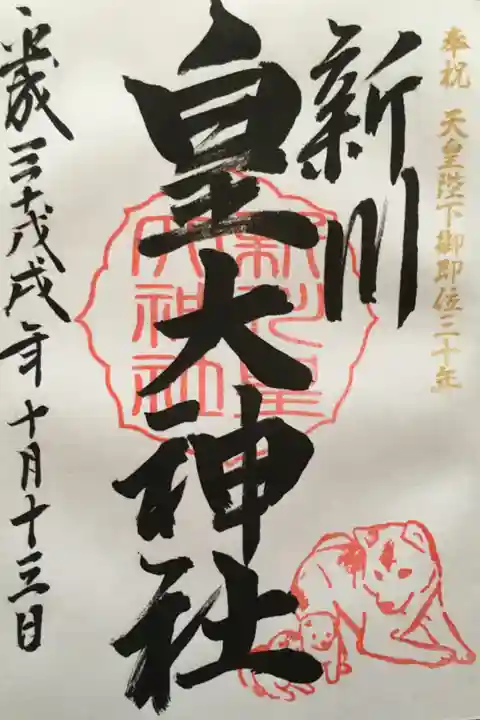 奉祝 天皇陛下御即位三十年
新川
皇大神社
新川皇
大神社
平成三十戊戌年十月十三日